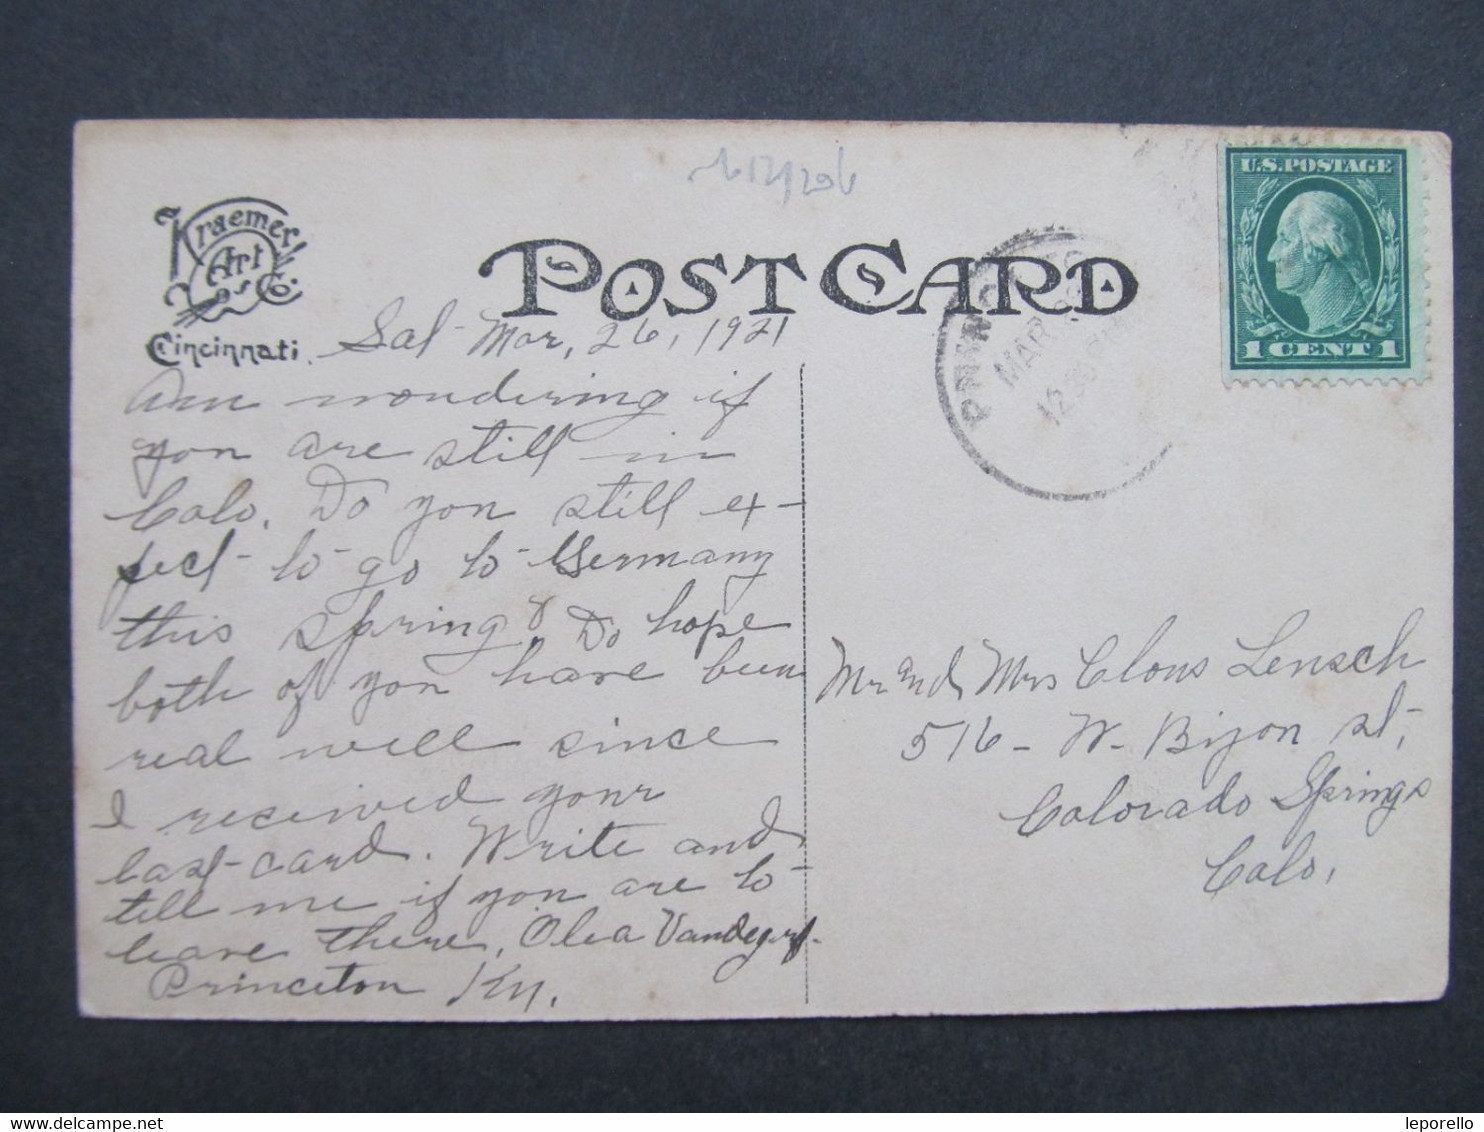 Kraemer
Art
Co.
Cincinnati.
POST CARD
U.S. POSTAGE
1 CENT 1
MAR
1230 PM
Sat- Mar, 26, 1921
Am wondering if
you are still in
Colo. Do you still ex-
pect to go to Germany
this spring? Do hope
both of you have been
real well since
I received your
last card. Write and
tell me if you are to
leave there, Olea
Princeton Ky.
Mr and Mrs Clous Lensch
516 - W. Bijon st,
Colorado Springs
Colo,
leporello